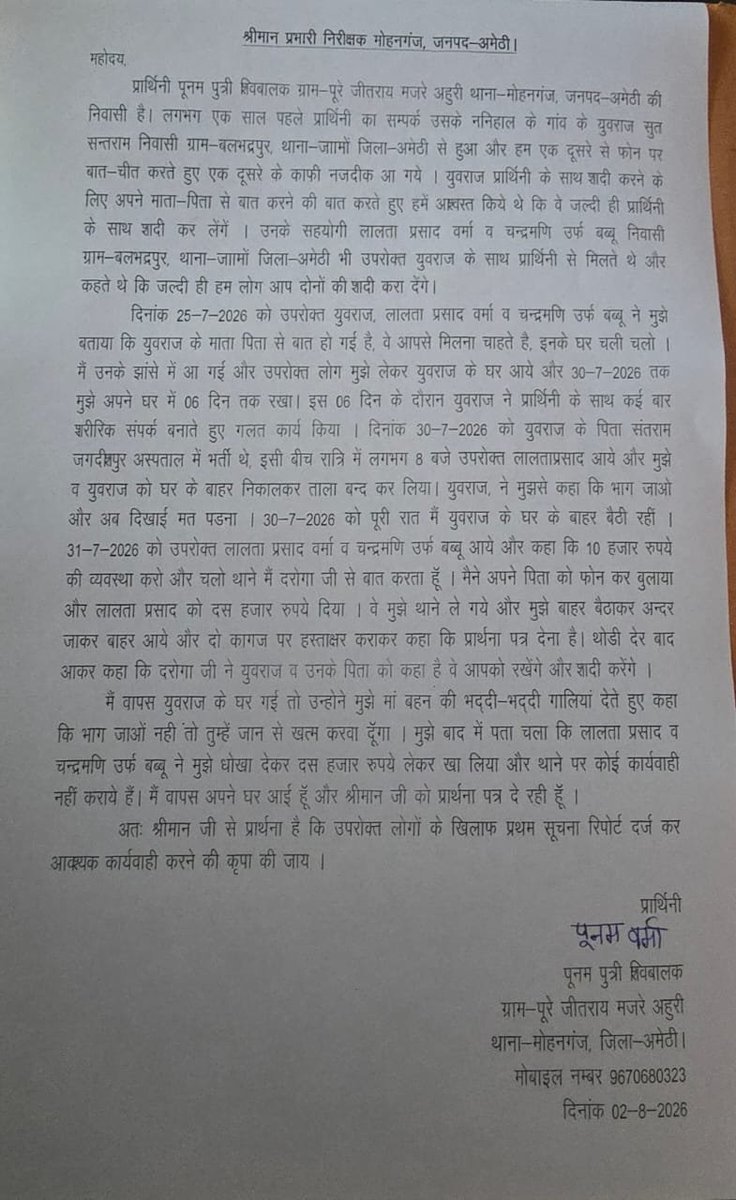 श्रीमान प्रभारी निरीक्षक मोहनगंज, जनपद–अमेठी।
महोदय,
प्रार्थिनी पूनम पुत्री शिवबालक ग्राम–पूरे जीतराय मजरे अहुरी थाना–मोहनगंज, जनपद–अमेठी की
निवासी है। लगभग एक साल पहले प्रार्थिनी का सम्पर्क उसके ननिहाल के गांव के युवराज सुत
सन्तराम निवासी ग्राम–बलभद्रपुर, थाना–जाामों जिला–अमेठी से हुआ और हम एक दूसरे से फोन पर
बात–चीत करते हुए एक दूसरे के काफी नजदीक आ गये । युवराज प्रार्थिनी के साथ शादी करने के
लिए अपने माता–पिता से बात करने की बात करते हुए हमें आश्वस्त किये थे कि वे जल्दी ही प्रार्थिनी
के साथ शादी कर लेंगें । उनके सहयोगी लालता प्रसाद वर्मा व चन्द्रमणि उर्फ बब्बू निवासी
ग्राम–बलभद्रपुर, थाना–जाामों जिला–अमेठी भी उपरोक्त युवराज के साथ प्रार्थिनी से मिलते थे और
कहते थे कि जल्दी ही हम लोग आप दोनों की शादी करा देंगे।
दिनांक 25–7–2026 को उपरोक्त युवराज, लालता प्रसाद वर्मा व चन्द्रमणि उर्फ बब्बू ने मुझे
बताया कि युवराज के माता पिता से बात हो गई है, वे आपसे मिलना चाहते है, इनके घर चली चलो ।
मैं उनके झांसे में आ गई और उपरोक्त लोग मुझे लेकर युवराज के घर आये और 30–7–2026 तक
मुझे अपने घर में 06 दिन तक रखा। इस 06 दिन के दौरान युवराज ने प्रार्थिनी के साथ कई बार
शरीरिक संपर्क बनाते हुए गलत कार्य किया । दिनांक 30–7–2026 को युवराज के पिता संतराम
जगदीशपुर अस्पताल में भर्ती थे, इसी बीच रात्रि में लगभग 8 बजे उपरोक्त लालताप्रसाद आये और मुझे
व युवराज को घर के बाहर निकालकर ताला बन्द कर लिया। युवराज, ने मुझसे कहा कि भाग जाओ
और अब दिखाई मत पडना । 30–7–2026 को पूरी रात मैं युवराज के घर के बाहर बैठी रहीं ।
31–7–2026 को उपरोक्त लालता प्रसाद वर्मा व चन्द्रमणि उर्फ बब्बू आये और कहा कि 10 हजार रुपये
की व्यवस्था करो और चलो थाने मैं दरोगा जी से बात करता हूॅ । मैने अपने पिता को फोन कर बुलाया
और लालता प्रसाद को दस हजार रुपये दिया । वे मुझे थाने ले गये और मुझे बाहर बैठाकर अन्दर
जाकर बाहर आये और दो कागज पर हस्ताक्षर कराकर कहा कि प्रार्थना पत्र देना है। थोडी देर बाद
आकर कहा कि दरोगा जी ने युवराज व उनके पिता को कहा है वे आपको रखेंगे और शादी करेंगे ।
मैं वापस युवराज के घर गई तो उन्होने मुझे मां बहन की भद्‌दी–भद्‌दी गालियां देते हुए कहा
कि भाग जाओं नही तो तुम्हें जान से खत्म करवा दूॅगा । मुझे बाद में पता चला कि लालता प्रसाद व
चन्द्रमणि उर्फ बब्बू ने मुझे धोखा देकर दस हजार रुपये लेकर खा लिया और थाने पर कोई कार्यवाही
नहीं कराये हैं। मैं वापस अपने घर आई हूॅ और श्रीमान जी को प्रार्थना पत्र दे रही हूॅ ।
अतः श्रीमान जी से प्रार्थना है कि उपरोक्त लोगों के खिलाफ प्रथम सूचना रिपोर्ट दर्ज कर
आवश्यक कार्यवाही करने की कृपा की जाय ।
प्रार्थिनी
पूनम वर्मा
पूनम पुत्री शिवबालक
ग्राम–पूरे जीतराय मजरे अहुरी
थाना–मोहनगंज, जिला–अमेठी।
मोबाइल नम्बर 9670680323
दिनांक 02–8–2026